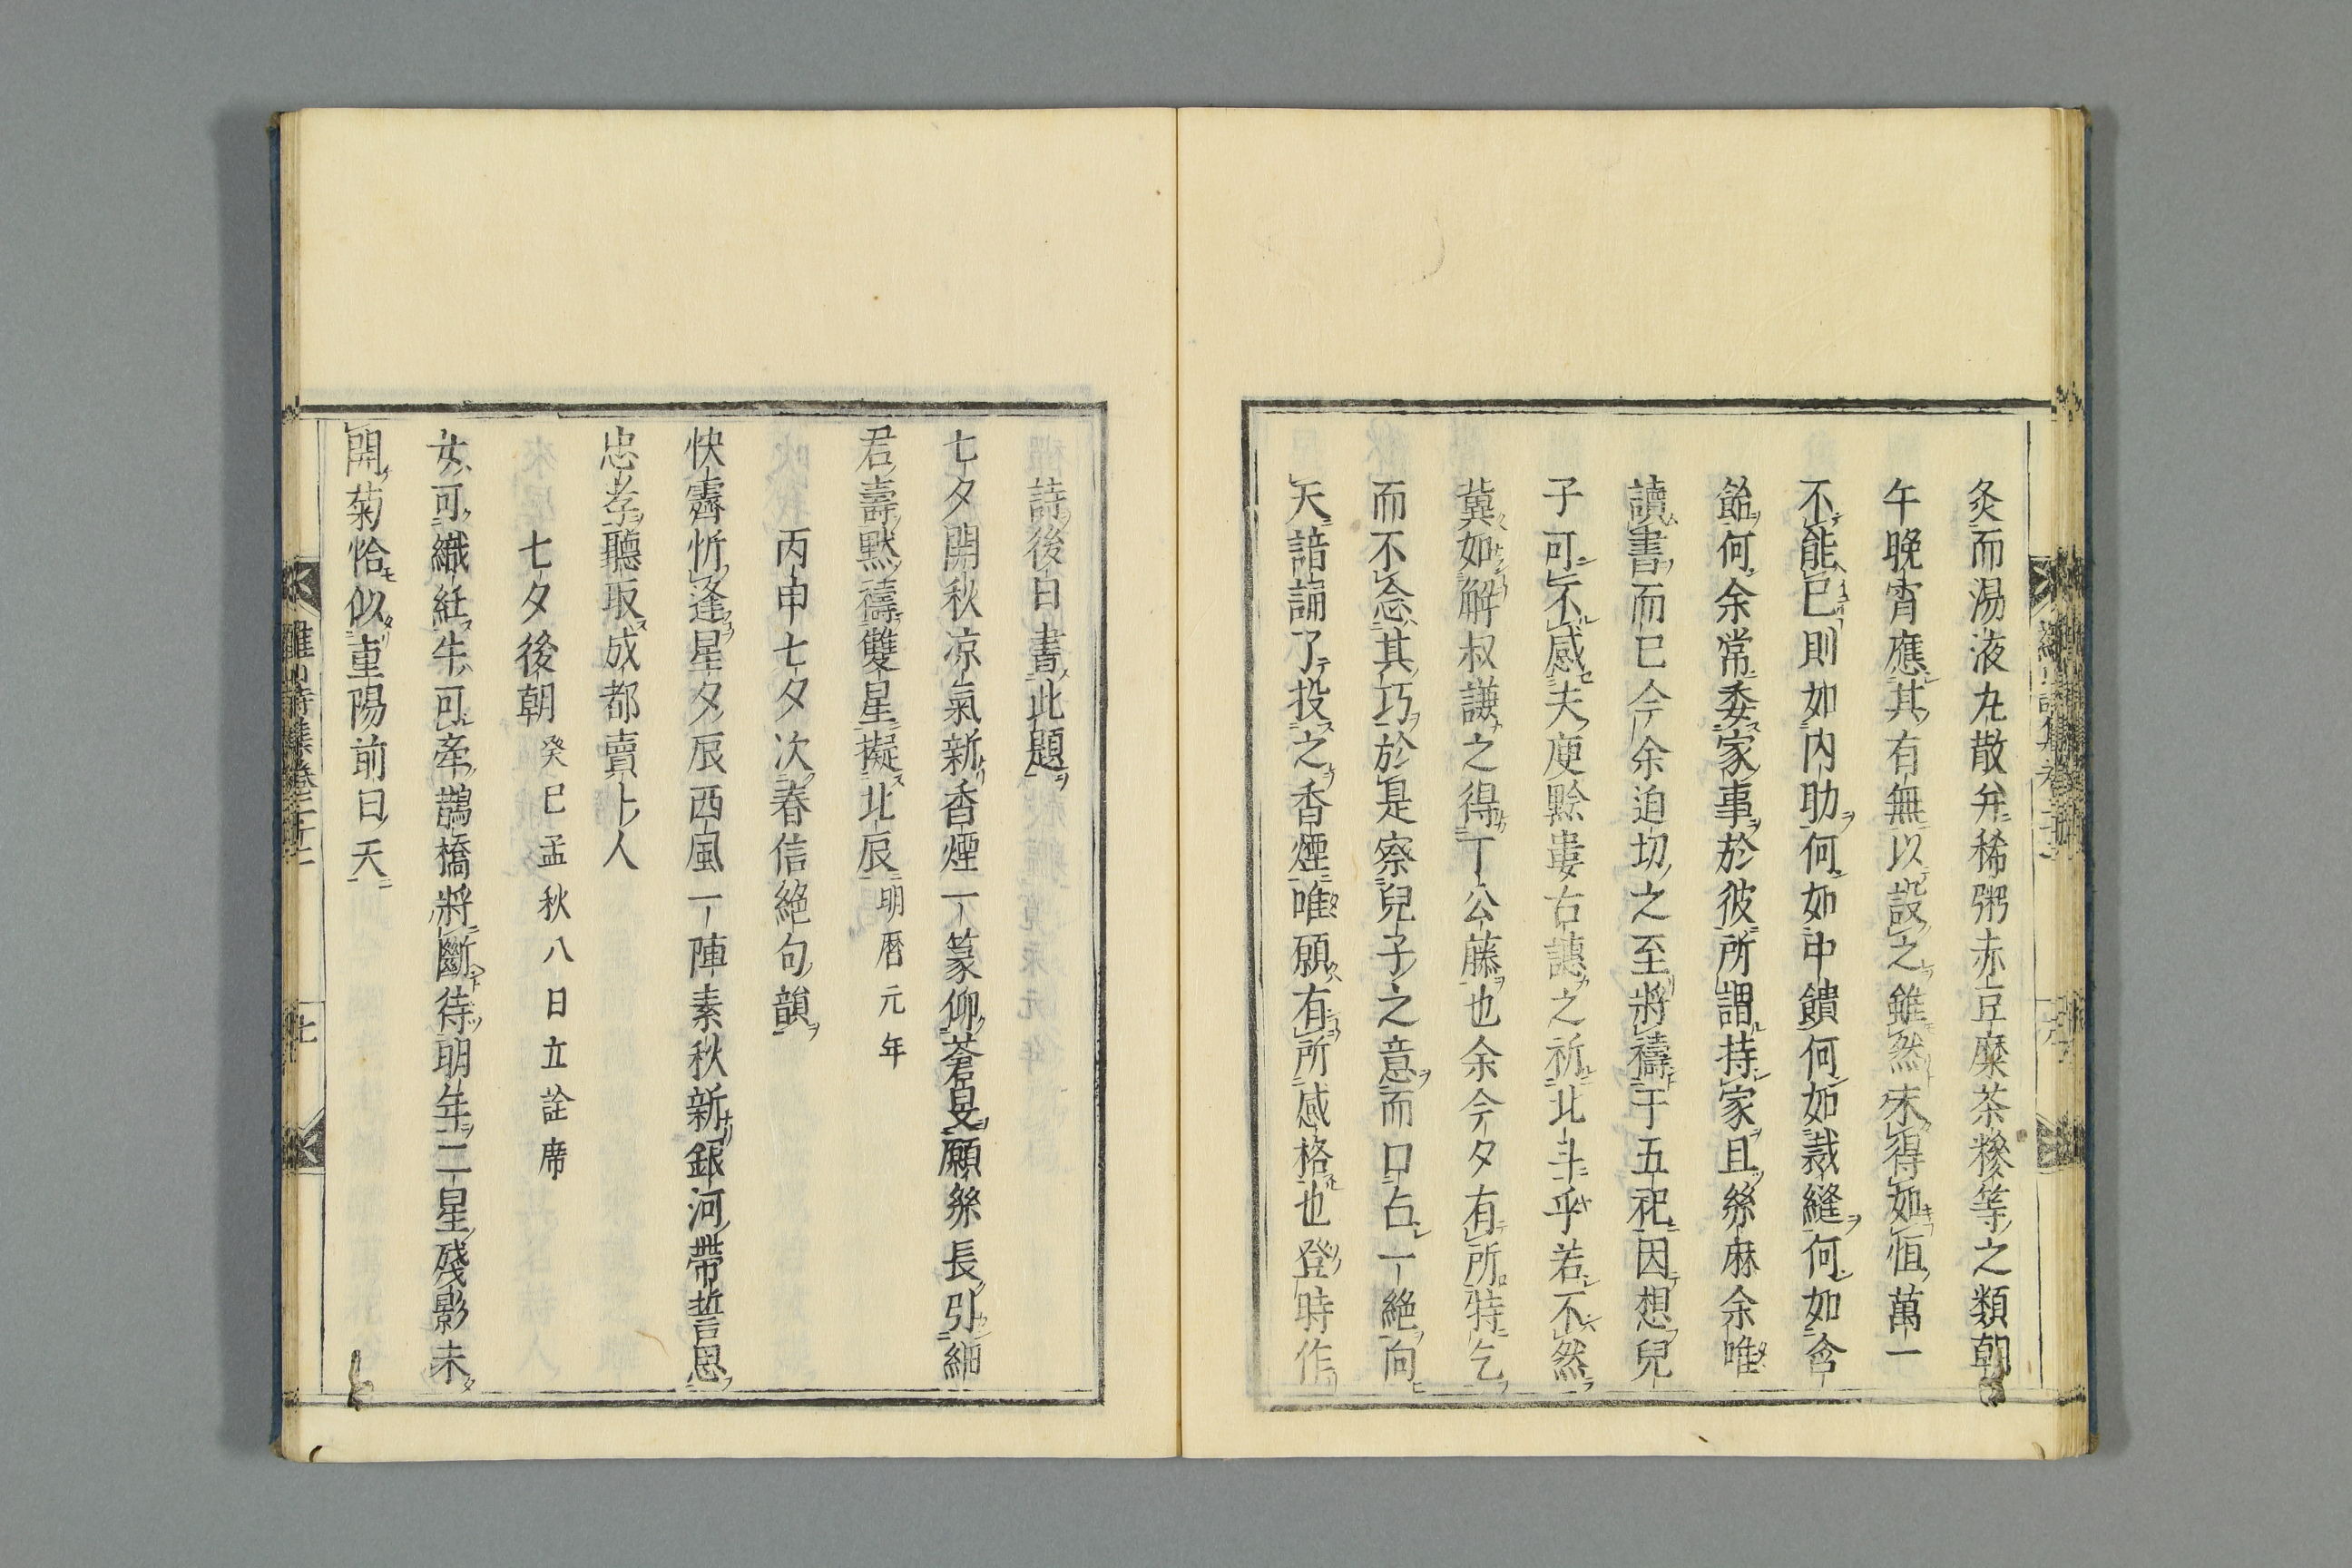 灸而湯液丸散并稀粥赤豆糜茶糝等之類朝
午晚宵應其有無以設之雖然未得如恒萬一
不能已則如内助何如中饋何如裁縫何如含
飴何余常委家事於彼所謂持家且絲麻余唯
讀書而已今余迫切之至將禱于五祀因想兒
子可不感夫庾黔婁右讌之祈北斗乎若不然
冀如解叔謙之得丁公藤也余今夕有所特乞
而不念其巧於是察兒子之意而口占一絶向
天諳誦了投之香煙唯願有所感格也登時作
詩後日書此題
七夕開秋凉氣新香煙一篆仰蒼旻願絲長引細
君壽默禱雙星擬北辰 明暦元年
丙申七夕次春信絶句韻
快霽忻逢星夕辰西風一陣素秋新銀河帶誓恩
忠孝聽取成都賣卜人
七夕後朝 癸巳孟秋八日立詮席
女可織紝牛可牽鵲橋將斷待明年二星殘影未
開菊恰似重陽前日天
羅山詩集卷二十二
七